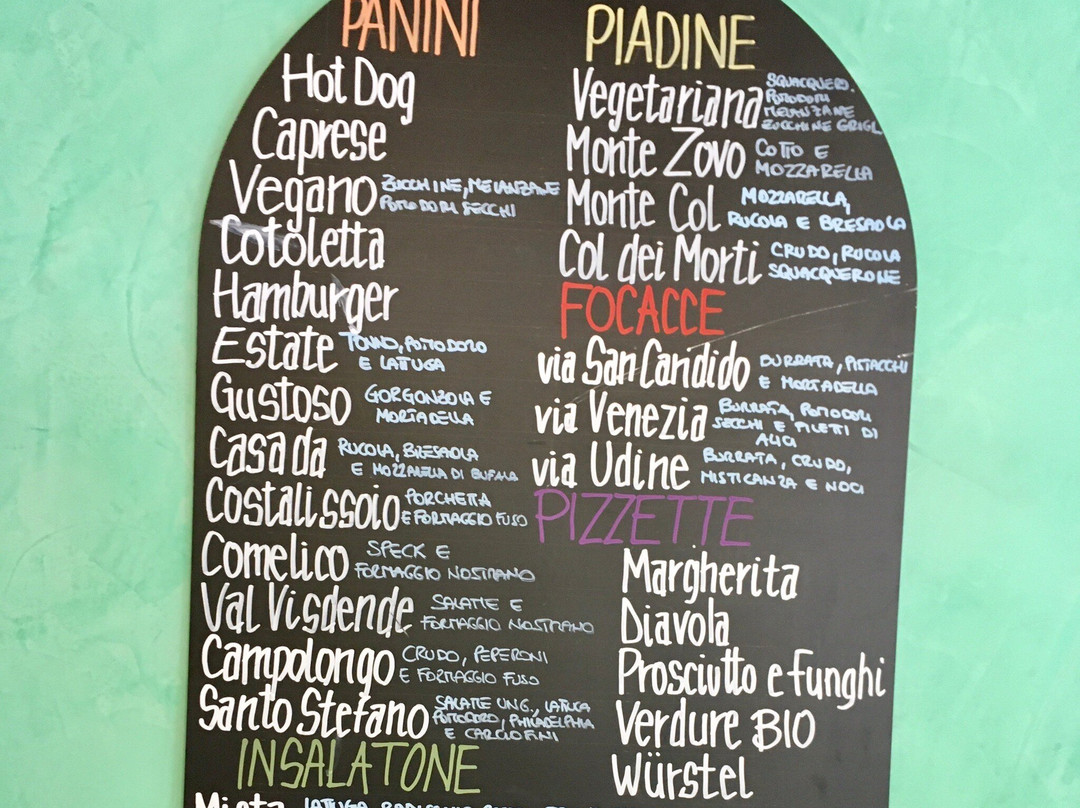 PANINI
Hot Dog
Caprese
Vegano ZUCCHINE, MELANZANE
POMODORI SECCHI
Cotoletta
Hamburger
Estate TONNO, POMODORO
E LATTUGA
Gustoso GORGONZOLA E
MORTADELLA
Casada RUCOLA, BRESAOLA
E MOZZARELLA DI BUFALA
Costalissoio PORCHETTA
E FORMAGGIO FUSO
Comelico SPECK E
FORMAGGIO NOSTRANO
Val Visdende SALAME E
FORMAGGIO NOSTRANO
Campolongo CRUDO, PEPERONI
E FORMAGGIO FUSO
Santo Stefano SALAME UNG., LATTUGA
POMODORO, PHILADELPHIA
E CARCIOFINI
INSALATONE
LATTUGA
PIADINE
Vegetariana SQUACQUERO.
POMODORI
MELANZANE
ZUCCHINE GRIGL
Monte Zovo COTTO E
MOZZARELLA
Monte Col MOZZARELLA,
RUCOLA E BRESAOLA
Col dei Morti CRUDO, RUCOLA
SQUACQUERONE
FOCACCE
via San Candido BURRATA, PISTACCHI
E MORTADELLA
via Venezia BURRATA, POMODORI
SECCHI E FILETTI DI
ALICI
via Udine BURRATA, CRUDO,
MISTICANZA E NOCI
PIZZETTE
Margherita
Diavola
Prosciutto e funghi
Verdure BIO
Würstel